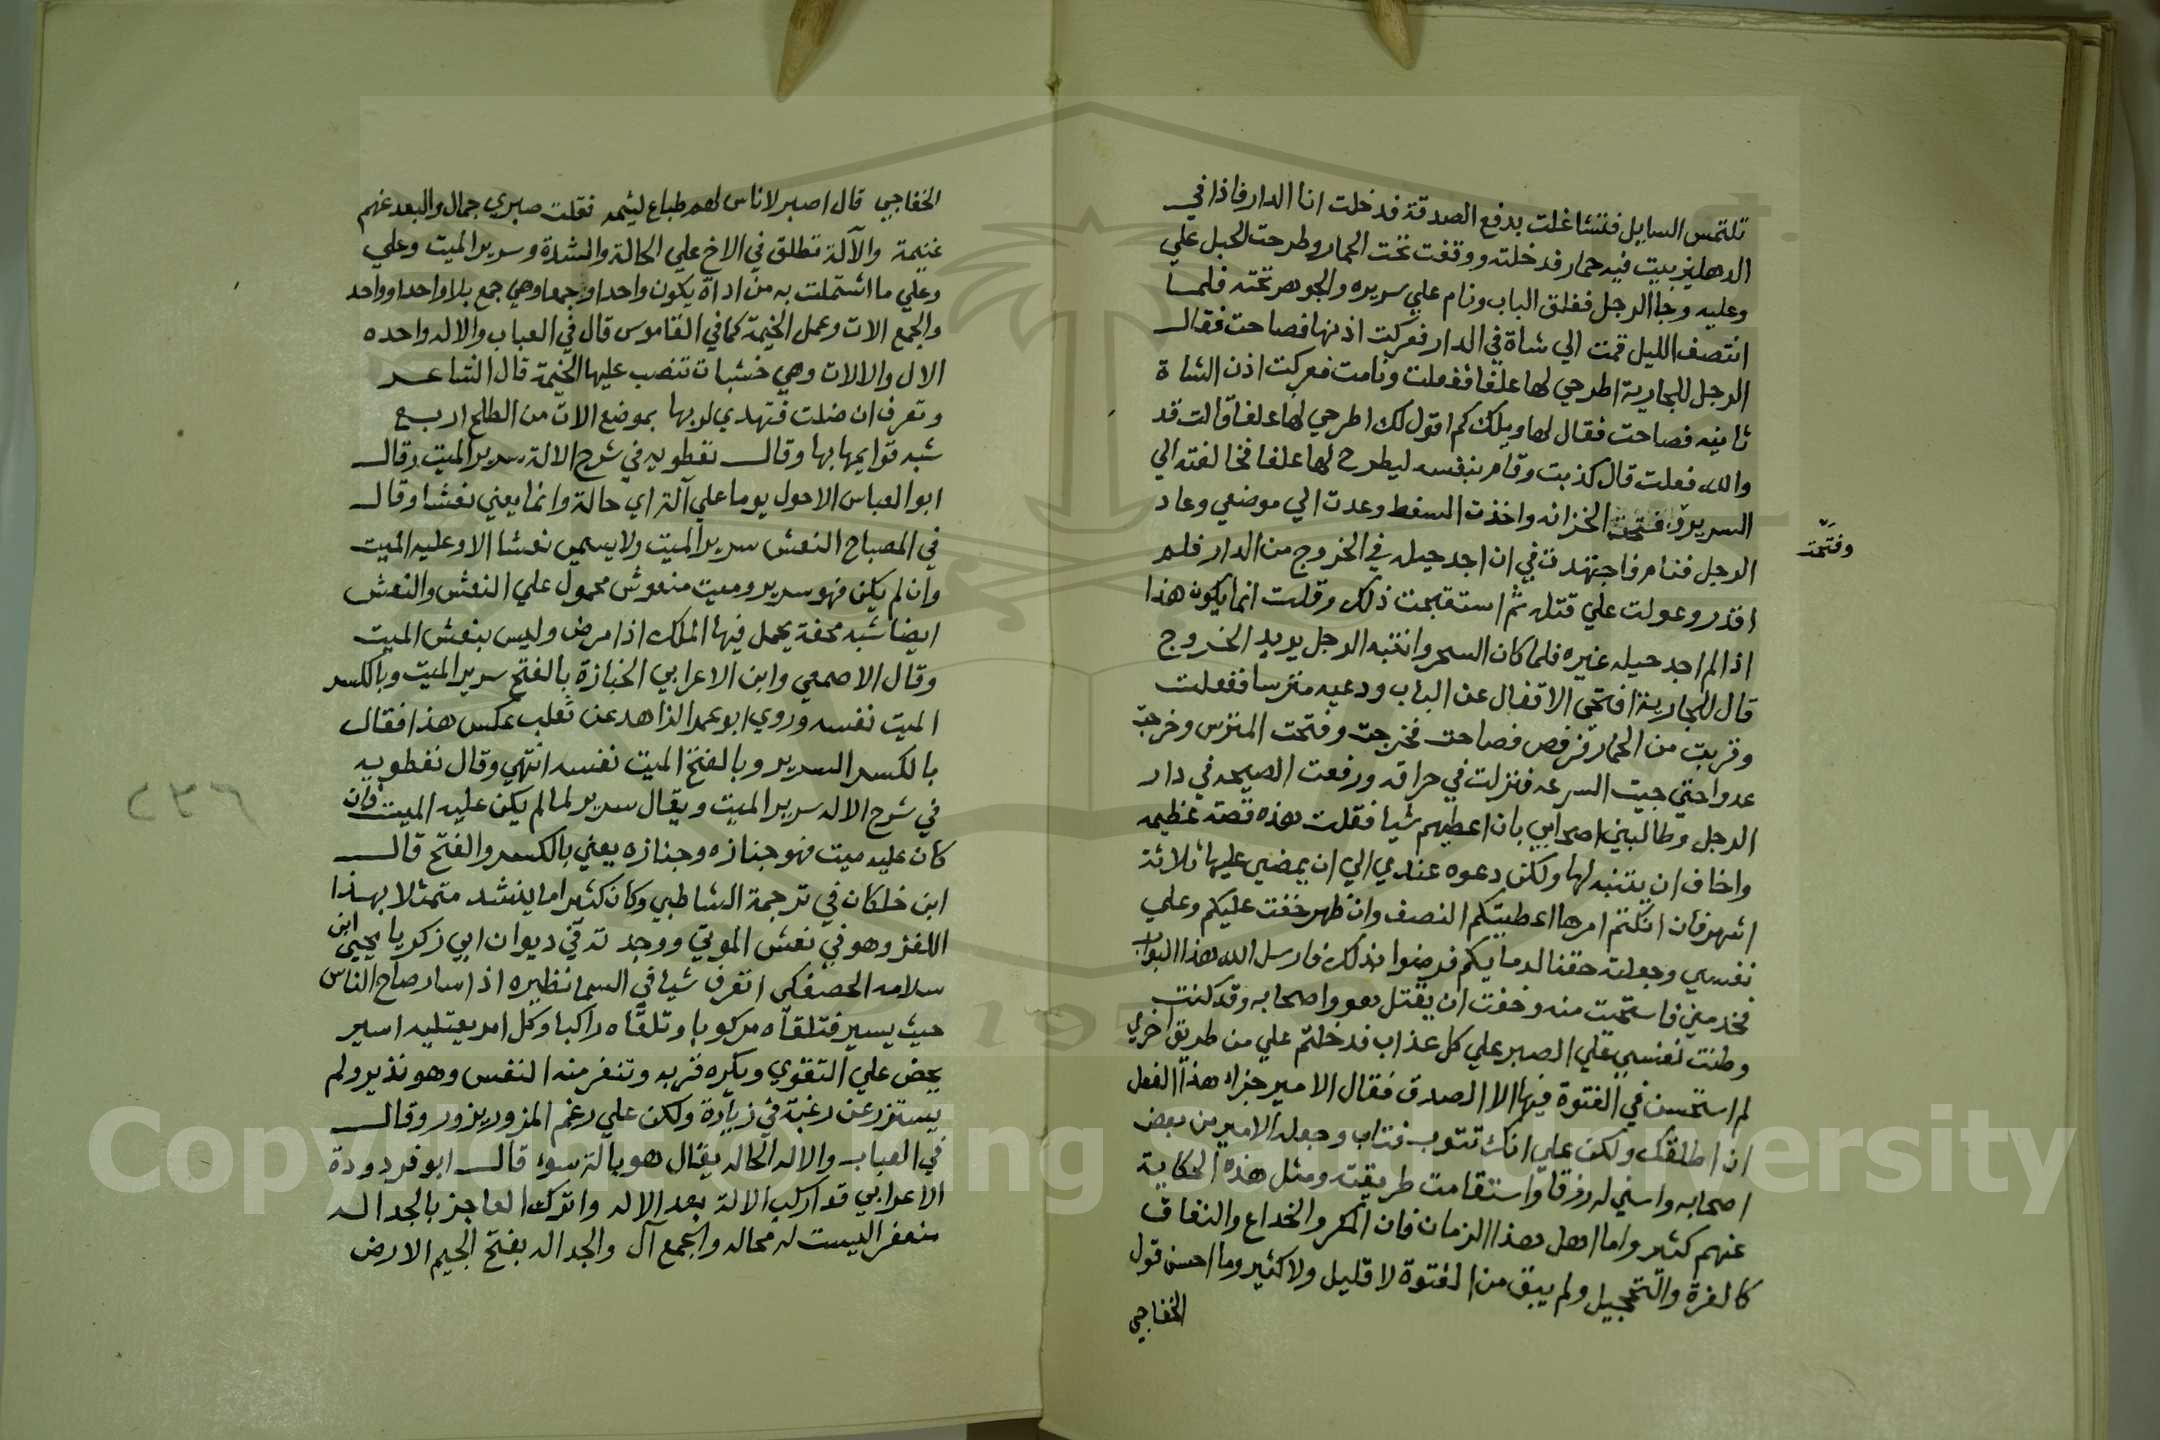 تلتمس السايل فتشاغلت بدفع الصدقة فدخلت انا الدار فاذا في
الدهليز بيت فيه حمار فدخلته ووقفت تحت الحمار وطرحت الجبل علي
وعليه وجا الرجل فغلق الباب ونام علي سريره والجوهر تحته فلما
انتصف الليل قمت الي شاة في الدار فعركت اذنها فصاحت فقال
الرجل للجارية اطرحي لها علفا ففعلت ونامت فعركت اذن الشاة
ثانيه فصاحت فقال لها ويلك كم اقول لك اطرحي لها علفا قالت قد
والله فعلت قال كذبت وقام بنفسه ليطرح لها علفا فخالفته الي
السرير وفتحت الخزانه واخذت السفط وعدت الي موضعي وعاد
وفتحت
الرجل فنام فاجتهدت في ان اجد حيله في الخروج من الدار فلم
اقدر وعولت علي قتله ثم استقبحت ذلك وقلت انما يكون هذا
اذا لم اجد حيله غيره فلما كان السحر وانتبه الرجل يريد الخروج
قال للجارية افتحي الاقفال عن الباب ودعيه مترسا ففعلت
وقربت من الحمار فرفص فصاحت فخرجت وفتحت المترس وخرجت
عدوا حتي جيت السرعه فنزلت في حراقه ورفعت الصيحه في دار
الرجل وطالبني اصحابي بان اعطيهم شيا فقلت هذه قصة عظيمه
واخاف ان يتنبه لها ولكن دعوه عندي الي ان يمضي عليها ثلاثة
اشهر فان انكتم امرها اعطيتكم النصف وان ظهر خفت عليكم وعلي
نفسي وجعلته حقنا لدمايكم فرضوا بذلك فارسل الله هذا البواب
فخدمني فاستحيت منه وخفت ان يقتل هو واصحابه وقد كنت
وطنت نفسي علي الصبر علي كل عذاب فدخلتم علي من طريق اخري
لم استحسن في الفتوة فيها الا الصدق فقال الامير جزاء هذا الفعل
ان اطلقك ولكن علي انك تتوب فتاب وجعله الامير من بعض
اصحابه واسني له رزقا واستقامت طريقته ومثل هذه الحكاية
عنهم كثير واما اهل هذا الزمان فان المكر والخداع والنفاق
كالغرة والتحجيل ولم يبق من الفتوة لا قليل ولا كثير وما احسن قول
الخفاجي
الخفاجي قال اصبر لاناس لهم طباع ليثمه فقلت صبري جمال والبعد عنهم
غنيمة والآلة تطلق في الاخ علي الحالة والشدة وسرير الميت وعلي
وعلي ما اشتملت به من اداة يكون واحدا وجمعا وهي جمع بلا واحد او واحد
والجمع الات وعمل الخيمة كما في القاموس قال في العباب والاله واحده
الال والالات وهي خشبات تنصب عليها الخيمة قال الشاعر
وتعرف ان ضلت فتهدي لربها بموضع الات من الطلح اربع
شبه قوايمها بها وقال نفطويه في شرح الالة سرير الميت وقال
ابو العباس الاحول يوما علي آلة اي حالة وانما يعني نعشا وقال
في المصباح النعش سرير الميت ولا يسمي نعشا الا وعليه الميت
وان لم يكن فهو سرير وميت منعوش محمول علي النعش والنعش
ايضا شبه محفة يحمل فيها الملك اذا مرض وليس بنعش الميت
وقال الاصمعي وابن الاعرابي الجنازة بالفتح سرير الميت وبالكسر
الميت نفسه وروي ابو عمر الزاهد عن ثعلب عكس هذا فقال
بالكسر السرير وبالفتح الميت نفسه انتهي وقال نفطويه
في شرح الاله سرير الميت ويقال سرير لما لم يكن عليه الميت فان
كان عليه ميت فهو جنازه وجنازه يعني بالكسر والفتح قال
ابن خلكان في ترجمة الشاطبي وكان كثيرا ما ينشد متمثلا بهذا
اللغز وهو في نعش الموتي ووجدته في ديوان ابي زكريا يحيي ابن
سلامه الحصفكي اتعرف شيا في السما نظيره اذا سار صاح الناس
حيث يسير فتلقاه مركوبا وتلقاه راكبا وكل امر يعتليه اسير
يحض علي التقوي ويكره قربه وتنفر منه النفس وهو نذير ولم
يستزر عن رغبة في زيارة ولكن علي رغم المزور يزور وقال
في العباب والاله الحاله يقال هو بآلة سوء قال ابو قردودة
الاعرابي قد اركب الالة بعد الاله واترك العاجز بالجداله
منعفر اليست له محاله والجمع آل والجداله بفتح الجيم الارض
٢٣٦
Copyright © King Saud University